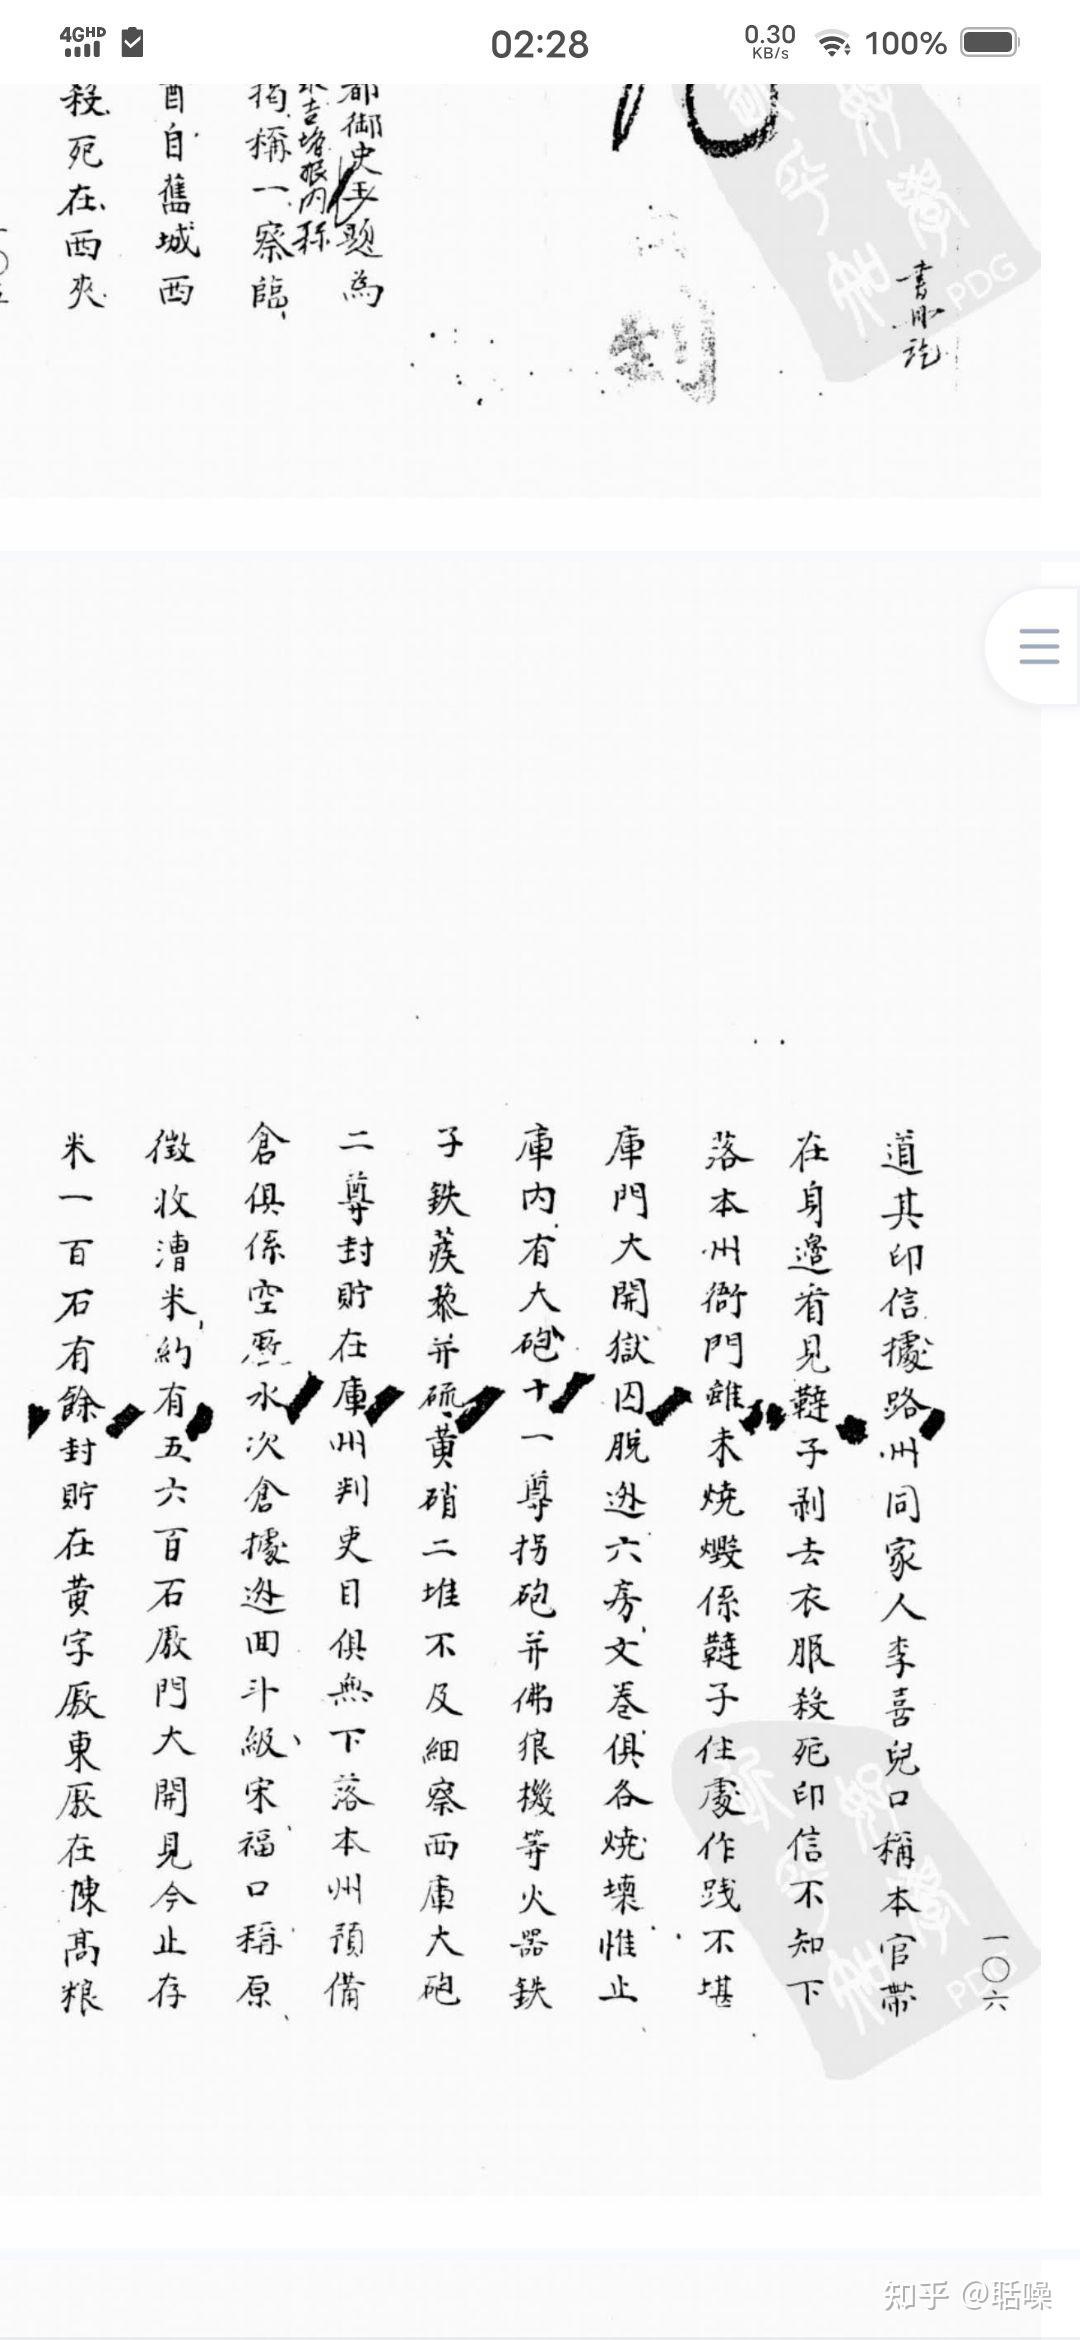 4GHD
02:28
0.30
KB/s
100%
書冊訖
都御史王題為
揭稱一察臨
酉自舊城西
殺死在西夾
一〇五
PDG
一〇六
道其印信據路州同家人李喜兒口稱本官帶
在身邊看見韃子剥去衣服殺死印信不知下
落本州衙門雖未燒燬係韃子住處作践不堪
庫門大開獄囚脫逃六房文卷俱各燒壞惟止
庫内有大砲十一尊拐砲并佛狼機等火器鉄
子鉄蒺藜并硫黄硝二堆不及細察西庫大砲
二尊封貯在庫州判吏目俱無下落本州預備
倉俱係空厫水次倉據逃回斗級宋福口稱原
徵收漕米約有五六百石厫門大開見今止存
米一百石有餘封貯在黄字厫東厫在陳髙粮
PDG
知乎 @聒噪